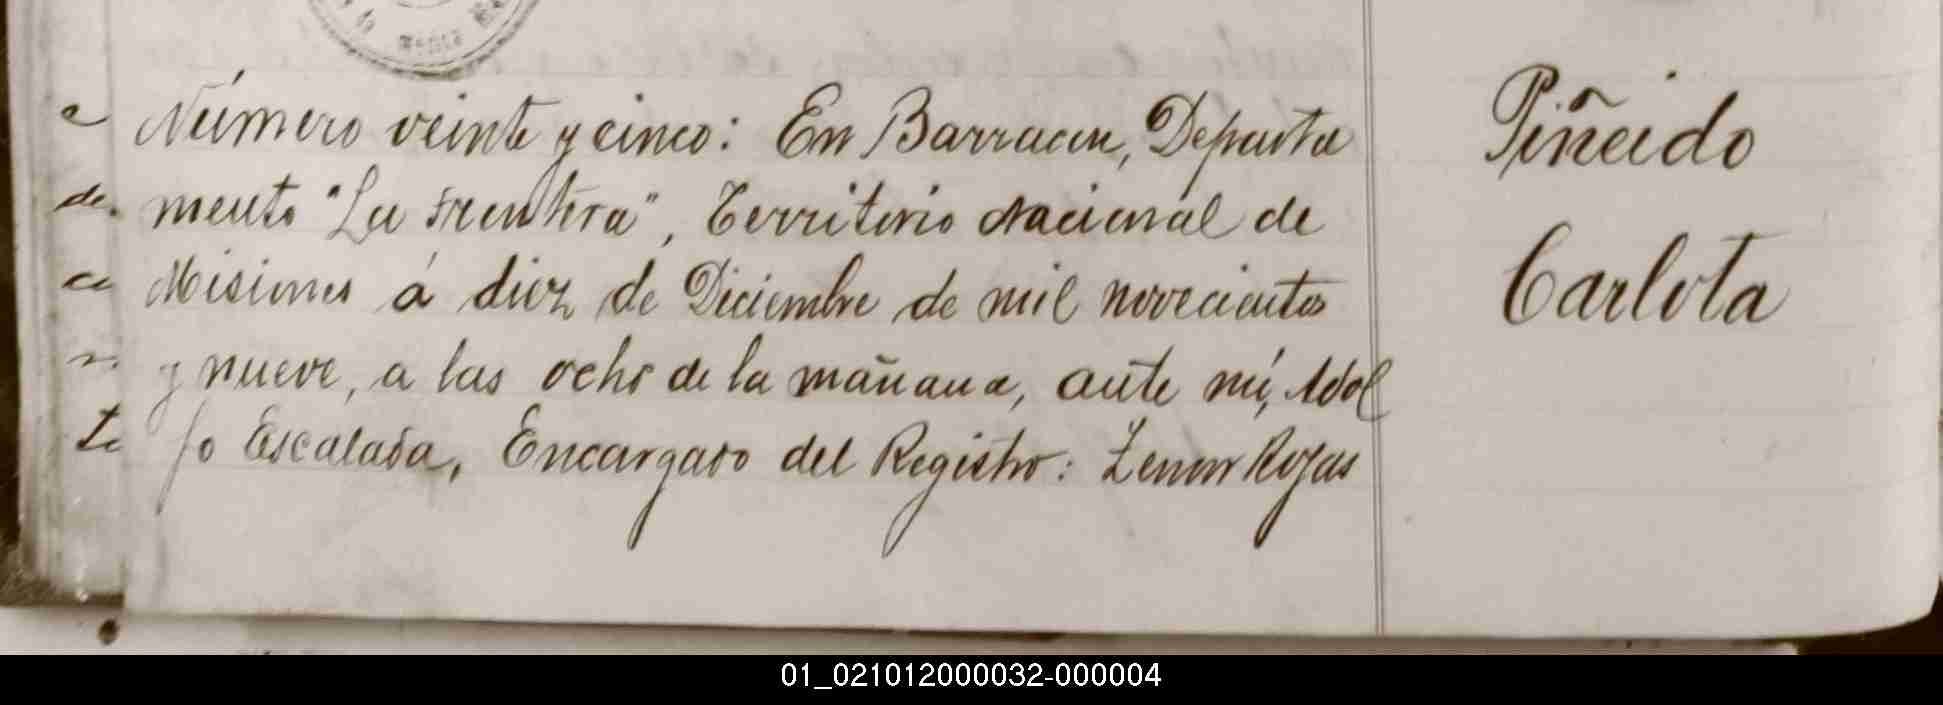 Número veinte y cinco: En Barracon, Departa
mento "La Frontera", Territorio Nacional de
Misiones á diez de Diciembre de mil novecientos
y nueve, a las ocho de la mañana, ante mí, Adol
fo Escalada, Encargado del Registro: Zenon Rojas
Piñeido
Carlota
01_021012000032-000004